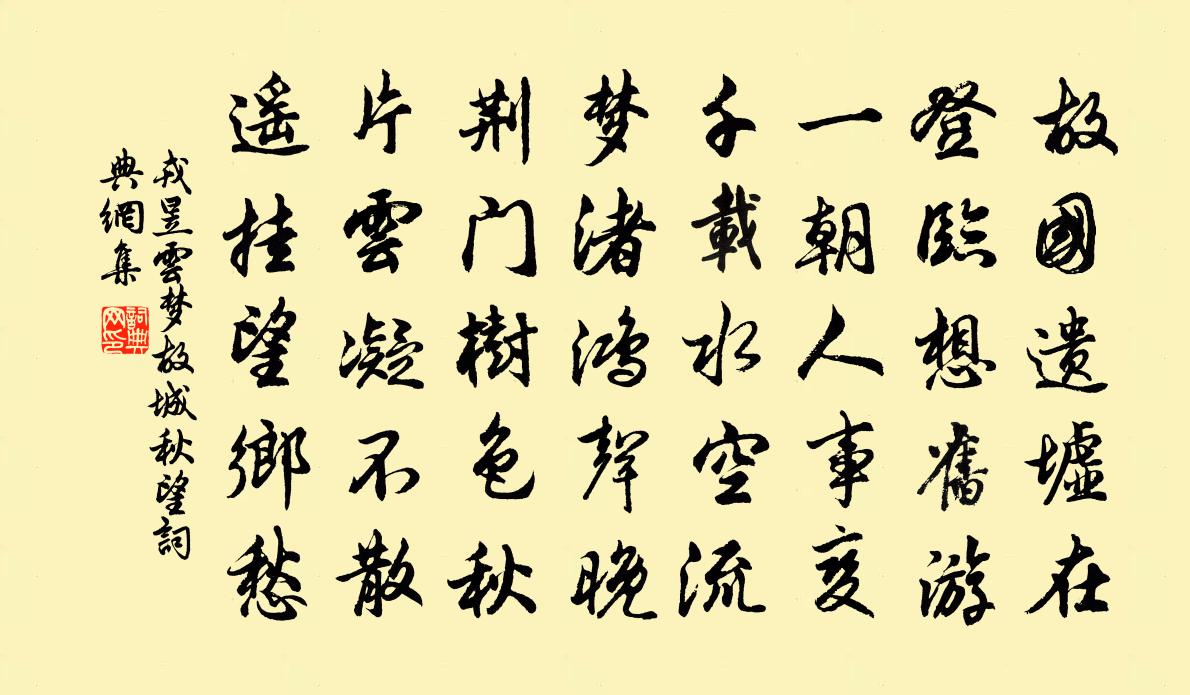 故國遗墟在
登臨想舊游
一朝人事变
千載水空流
梦渚鸿聲晚
荆门樹色秋
片雲凝不散
遥挂望鄉愁
戎昱雲梦故城秋望詞
典網集
詞典网印